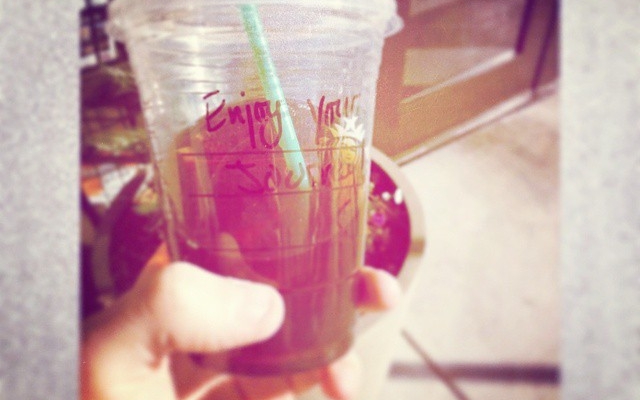 Enjoy your
Journey